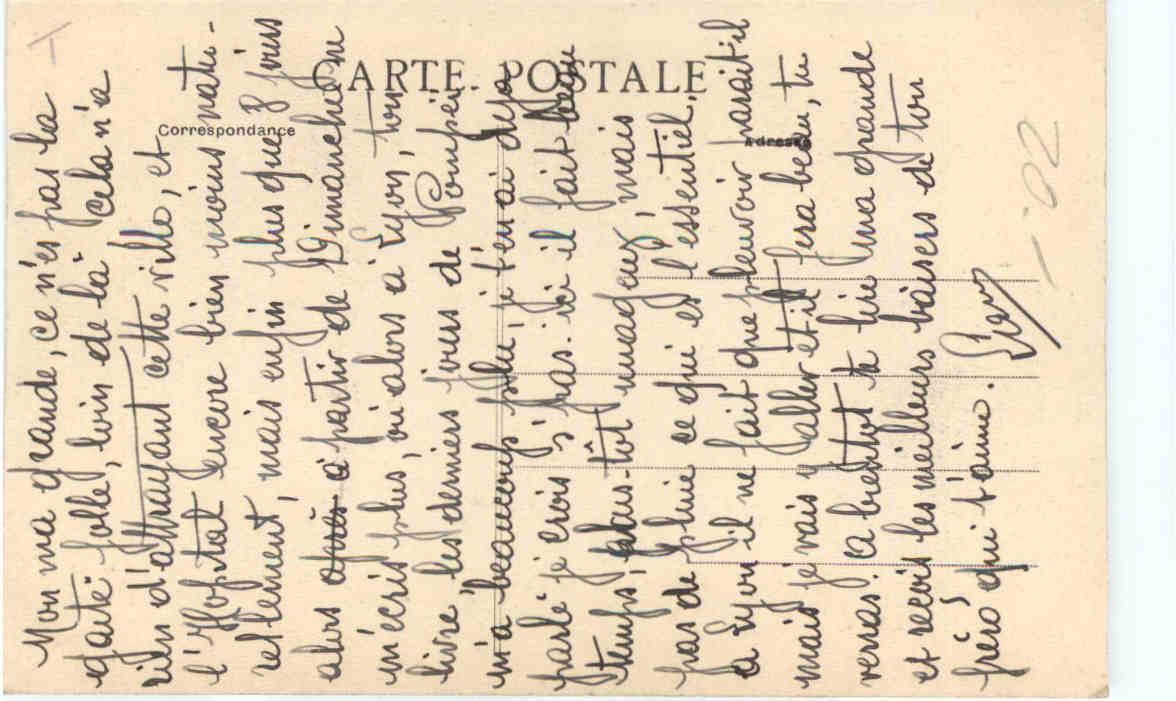 CARTE POSTALE
Correspondance
Adresse
Non ma grande, ce n'est pas la
gaité folle, loin de là. Cela n'a
rien d'attrayant cette ville, et
l'Hopital encore bien moins natu-
rellement, mais enfin plus que 8 jours
alors après à partir de Dimanche ne
m'écris plus, ou alors à Lyon, ton
livre, les derniers jours de Pompéi
m'a beaucoup plu, je t'en ai déjà
parlé je crois, pas. ici il fait beau
temps, plus-tôt nuageux, mais
pas de pluie ce qui est l'essentiel,
à Lyon il ne fait que pleuvoir parait-il
mais je vais y aller et il fera beau, tu
verras. à bientot te lire ma grande
et reçois les meilleurs baisers de ton
frérô qui t'aime.
- 02